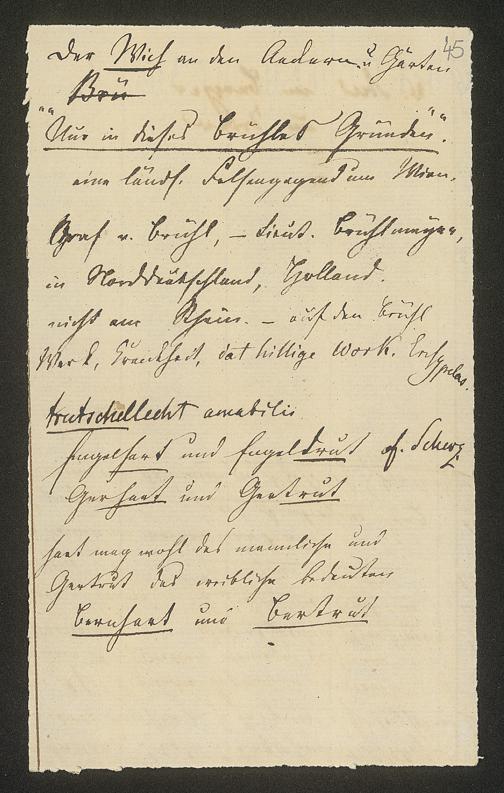 45
Der Wich an den Aeckern u. Gärten
Brü
"Nur in dieses Brühles Gründen".
eine ländl. Felsengegend um Wien.
Graf v. Brühl, – Lieut. Brühlmeyer,
in Norddeutschland, Holland.
nicht am Rhein. – auf den Brühl
Werk, Krankheit, dat hillige Work. Erysypelas.
trutschellecht amabilis
Engelhart und Engeltrut cf. Scherz
Gerhart und Gertrut
hart mag wohl das männliche und
Gertrut das weibliche bedeuten
Bernhart und Bertrut